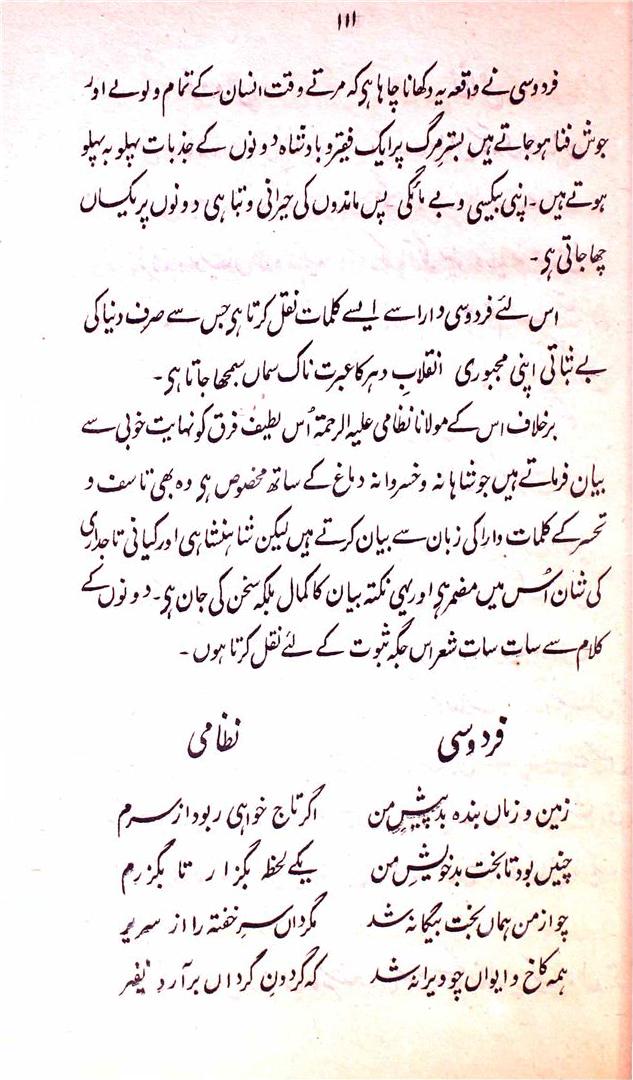 ۱۱۱
فردوسی نے واقعہ یہ دکھانا چاہا ہی کہ مرتے وقت انسان کے تمام ولولے اور
جوش فنا ہو جاتے ہیں بسترِ مرگ پر ایک فقیر و بادشاہ دونوں کے جذبات پہلو بہ پہلو
ہوتے ہیں۔ اپنی بیکسی و بے مائگی پس ماندوں کی حیرانی و تباہی دونوں پر یکساں
چھا جاتی ہی۔
اس لئے فردوسی دارا سے ایسے کلمات نقل کرتا ہی جس سے صرف دنیا کی
بے ثباتی اپنی مجبوری انقلابِ دہر کا عبرت ناک سماں سمجھا جاتا ہی۔
برخلاف اس کے مولانا نظامی علیہ الرحمۃ اُس لطیف فرق کو نہایت خوبی سے
بیان فرماتے ہیں جو شاہانہ و خسروانہ دماغ کے ساتھ مخصوص ہی وہ بھی تاسف و
تحسر کے کلمات دارا کی زبان سے بیان کرتے ہیں لیکن شاہنشاہی اور کیانی تاجداری
کی شان اُس میں مضمر ہی اور یہی نکتہ بیان کا کمال بلکہ سخن کی جان ہی۔ دونوں کے
کلام سے سات سات شعر اس جگہ ثبوت کے لئے نقل کرتا ہوں۔
فردوسی
زمین و زماں بندہ بد پیشِ من
چنیں بود تا بخت بد خویشِ من
چو از من ہماں بخت بیگانہ شد
ہمہ کاخ و ایواں چو ویرانہ شد
نظامی
اگر تاج خواہی ربود از سرم
یکے لحظہ بگزار تا بگزرم
مگرداں سرِ خفتہ را از سریر
کہ گردونِ گرداں برآرد نفیر